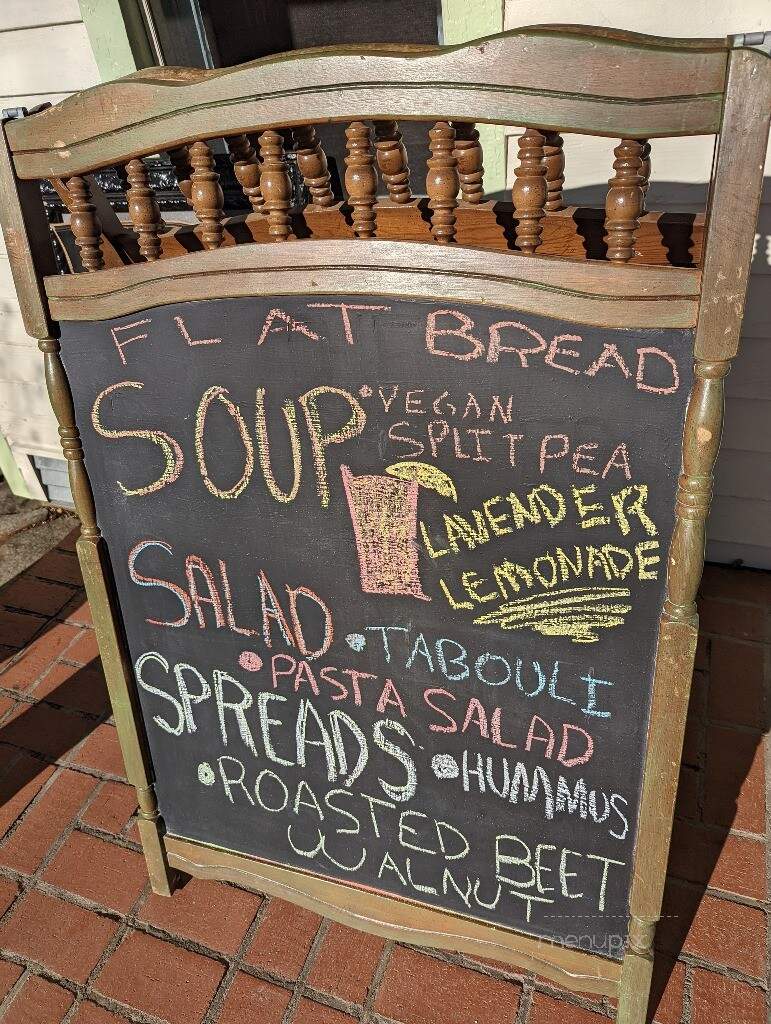 FLAT BREAD
SOUP • VEGAN
SPLIT PEA
LAVENDER
LEMONADE
SALAD • TABOULI
• PASTA SALAD
SPREADS • HUMMUS
• ROASTED BEET
WALNUT
menupix